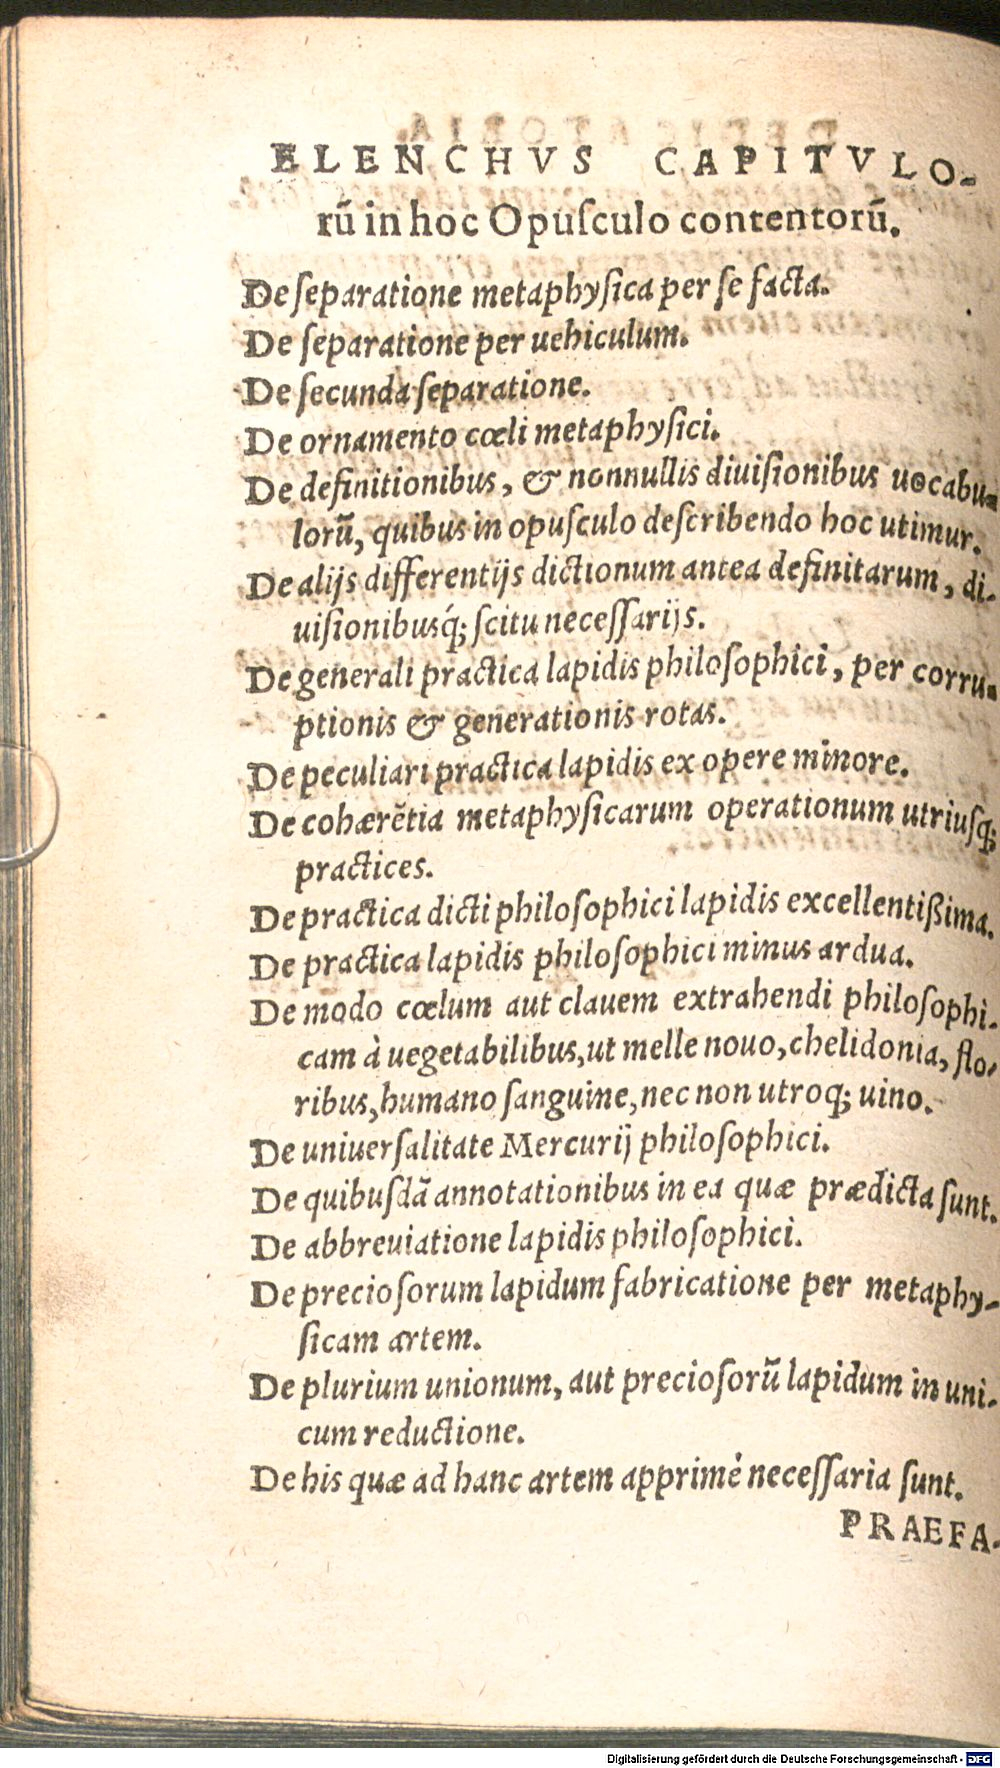 ELENCHVS CAPITVLO-
rũ in hoc Opuſculo contentorũ.
De ſeparatione metaphyſica per ſe facta.
De ſeparatione per uehiculum.
De ſecunda ſeparatione.
De ornamento cœli metaphyſici.
De definitionibus, & nonnullis diuiſionibus uocabu-
lorũ, quibus in opuſculo deſcribendo hoc utimur.
De alijs differentijs dictionum antea definitarum, di-
uiſionibusq́; ſcitu neceſſarijs.
De generali practica lapidis philoſophici, per corru-
ptionis & generationis rotas.
De peculiari practica lapidis ex opere minore.
De cohærẽtia metaphyſicarum operationum utriuſq;
practices.
De practica dicti philoſophici lapidis excellentißima.
De practica lapidis philoſophici minus ardua.
De modo cœlum aut clauem extrahendi philoſophi-
cam à uegetabilibus, ut melle nouo, chelidonia, flo-
ribus, humano ſanguine, nec non utroq; uino.
De uniuerſalitate Mercurij philoſophici.
De quibuſdã annotationibus in ea quæ prædicta ſunt.
De abbreuiatione lapidis philoſophici.
De precioſorum lapidum fabricatione per metaphy-
ſicam artem.
De plurium unionum, aut precioſorũ lapidum in uni-
cum reductione.
De his quæ ad hanc artem apprimè neceſſaria ſunt.
PRAEFA-
Digitalisierung gefördert durch die Deutsche Forschungsgemeinschaft - DFG